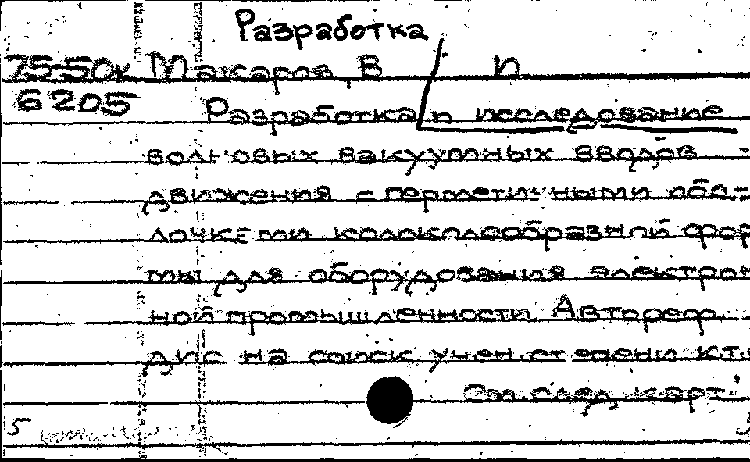 Разработка
75-50к Макаров В П
6205 Разработка и исследование
волновых вакуумных вводов
движения с герметичными обо-
лочками колоколообразной фор
мы для оборудования электрон
ной промышленности Автореф.
дис на соиск учен степени к.т.
См след карт.
5